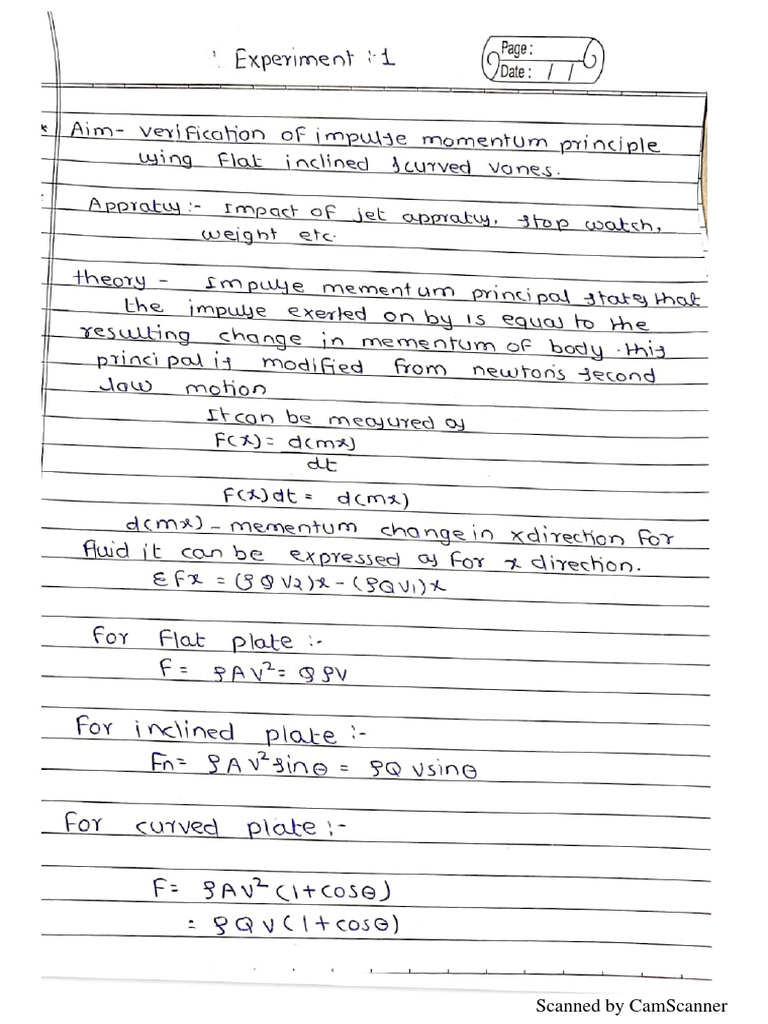 Experiment :- 1
Page :
Date : / /
* Aim- verification of impulse momentum principle
using flat inclined & curved vanes.
Appratus :- Impact of jet appratus, stop watch,
weight etc.
theory - Impulse mementum principal states that
the impulse exerted on by is equal to the
resulting change in mementum of body. this
principal is modified from newton's second
law motion
It can be measured as
F(x) = d(mx)
dt
F(x)dt = d(mx)
d(mx) - mementum change in x direction for
fluid it can be expressed as for x direction.
Σfx = (ρQV2)x - (ρQV1)x
for flat plate :-
F = ρAV² = QρV
for inclined plate :-
Fn = ρAV²sinθ = ρQVsinθ
for curved plate :-
F = ρAV²(1+cosθ)
= ρQV(1+cosθ)
Scanned by CamScanner